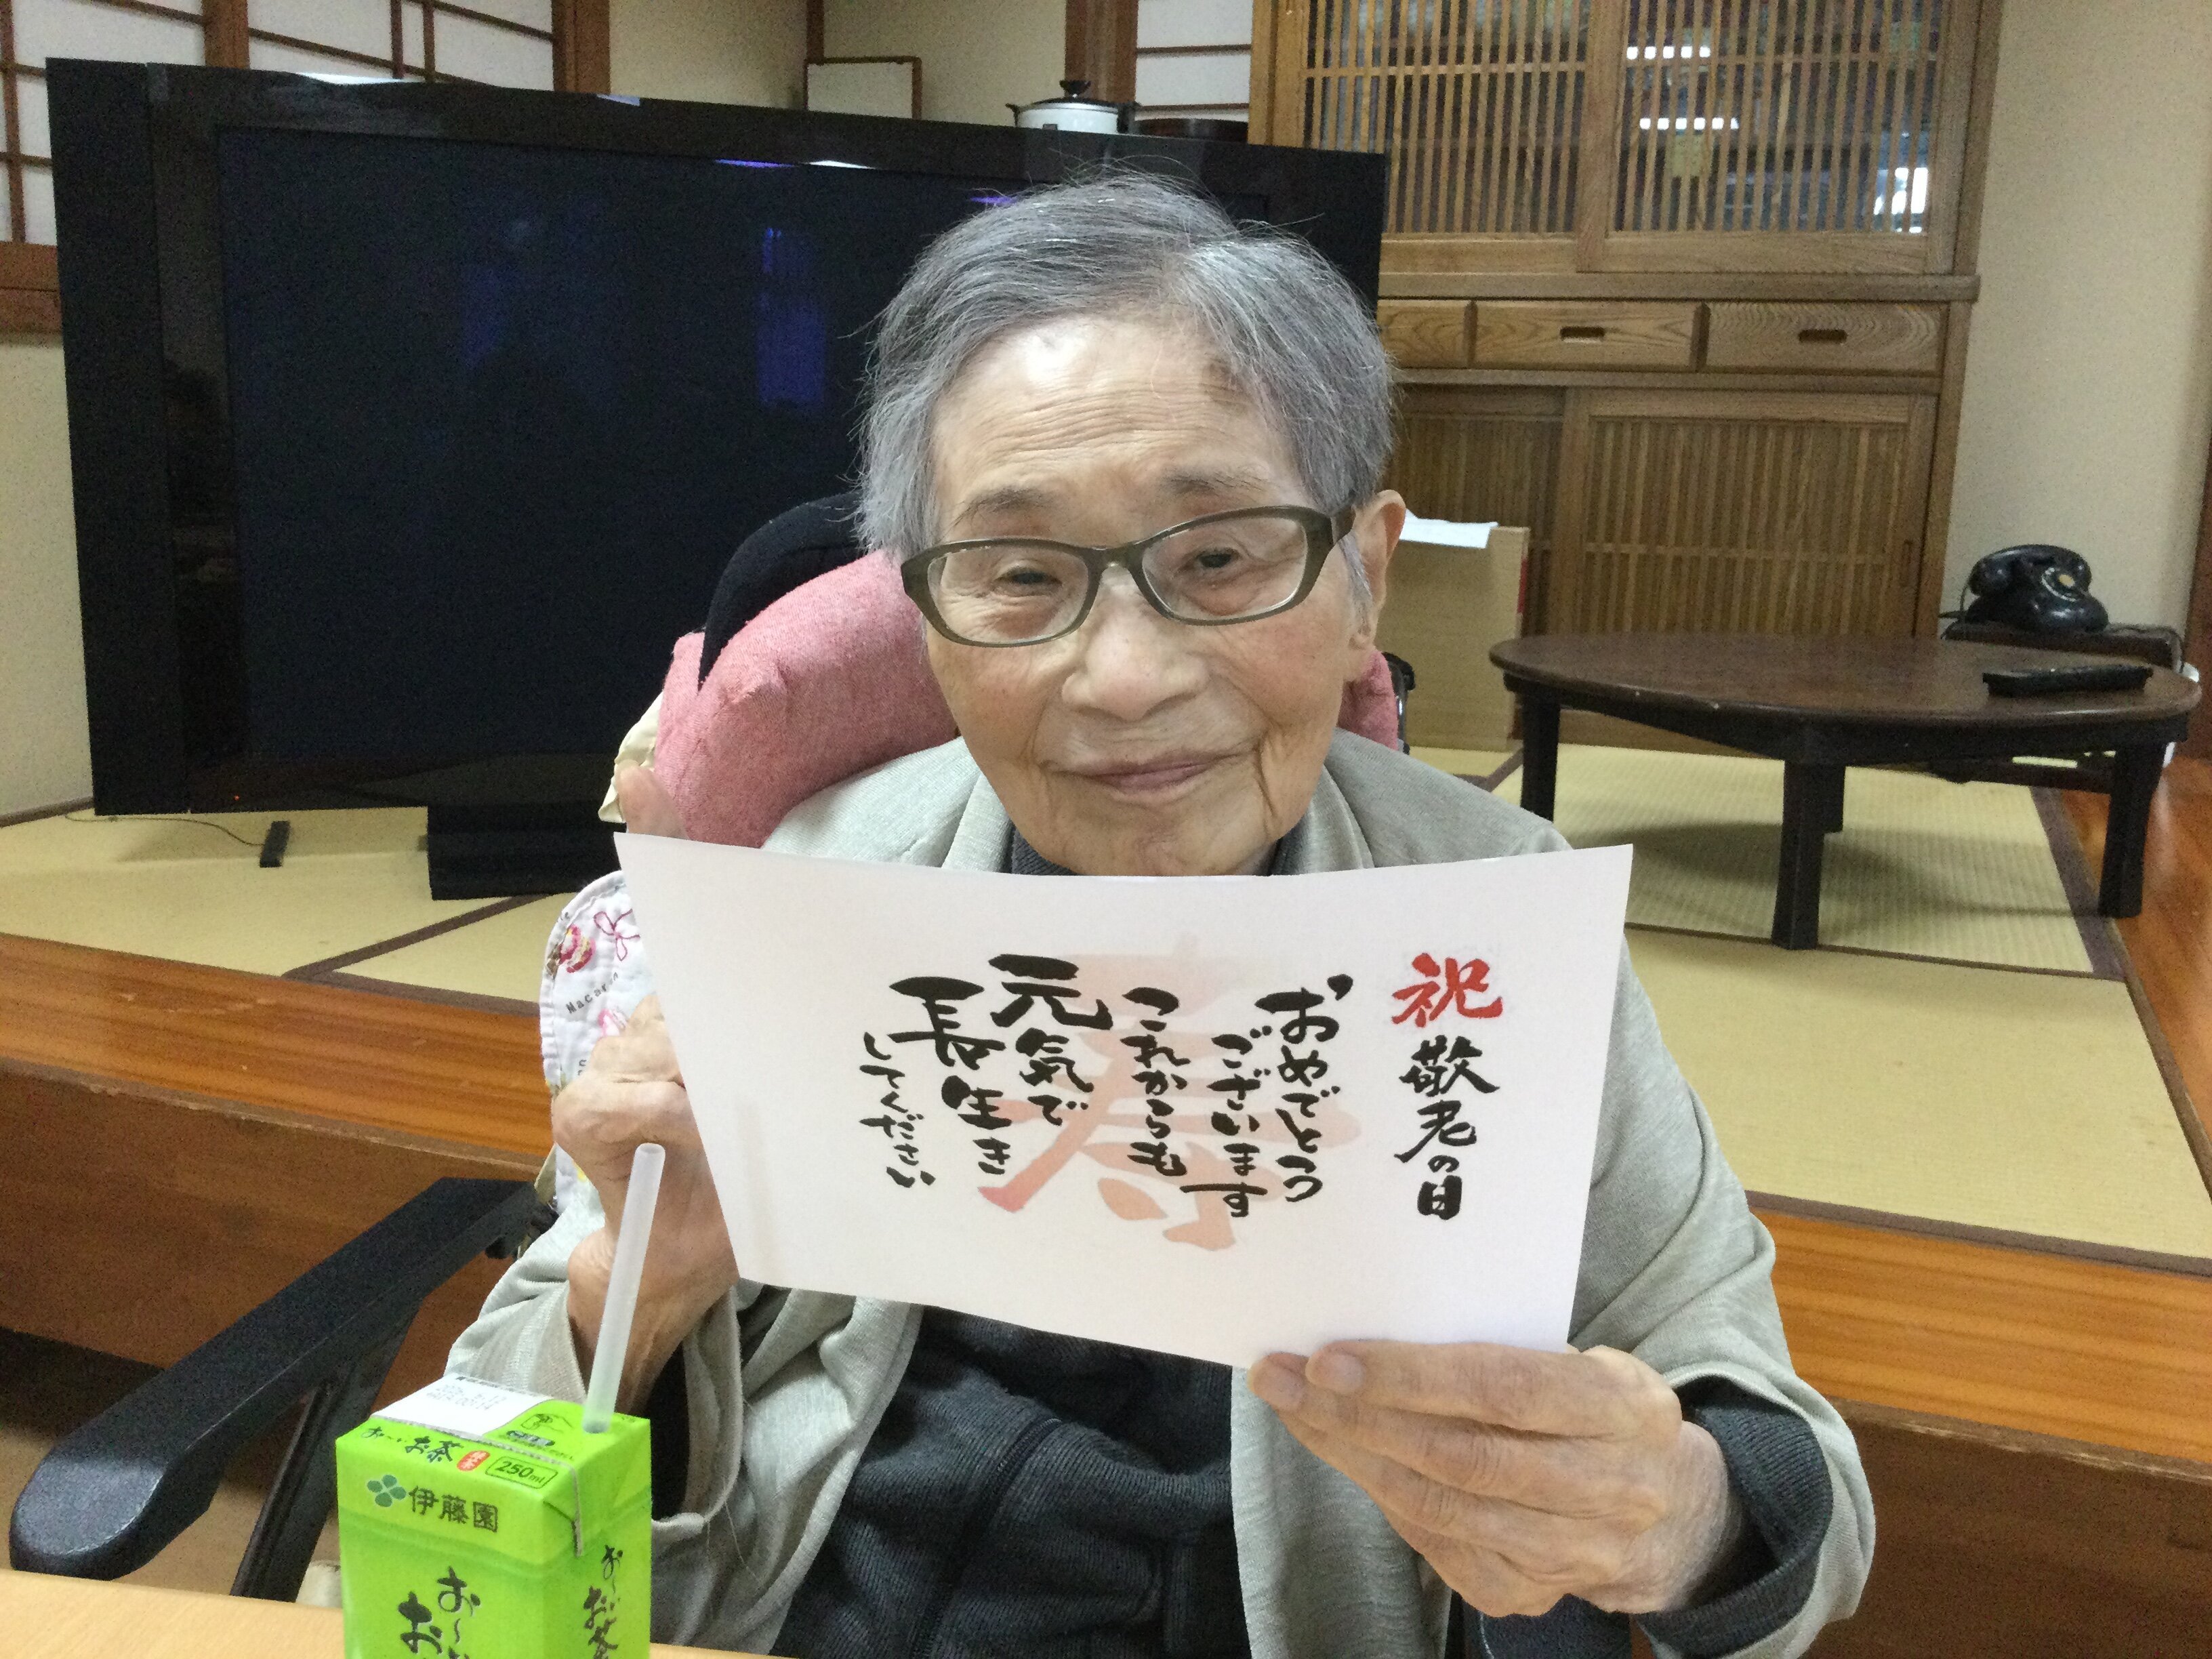 祝 敬老の日
おめでとう
ございます
これからも
元気で
長生き
してください
寿
お～いお茶
緑茶
250ml
伊藤園
お～い
お
お～い
お茶
Macaron